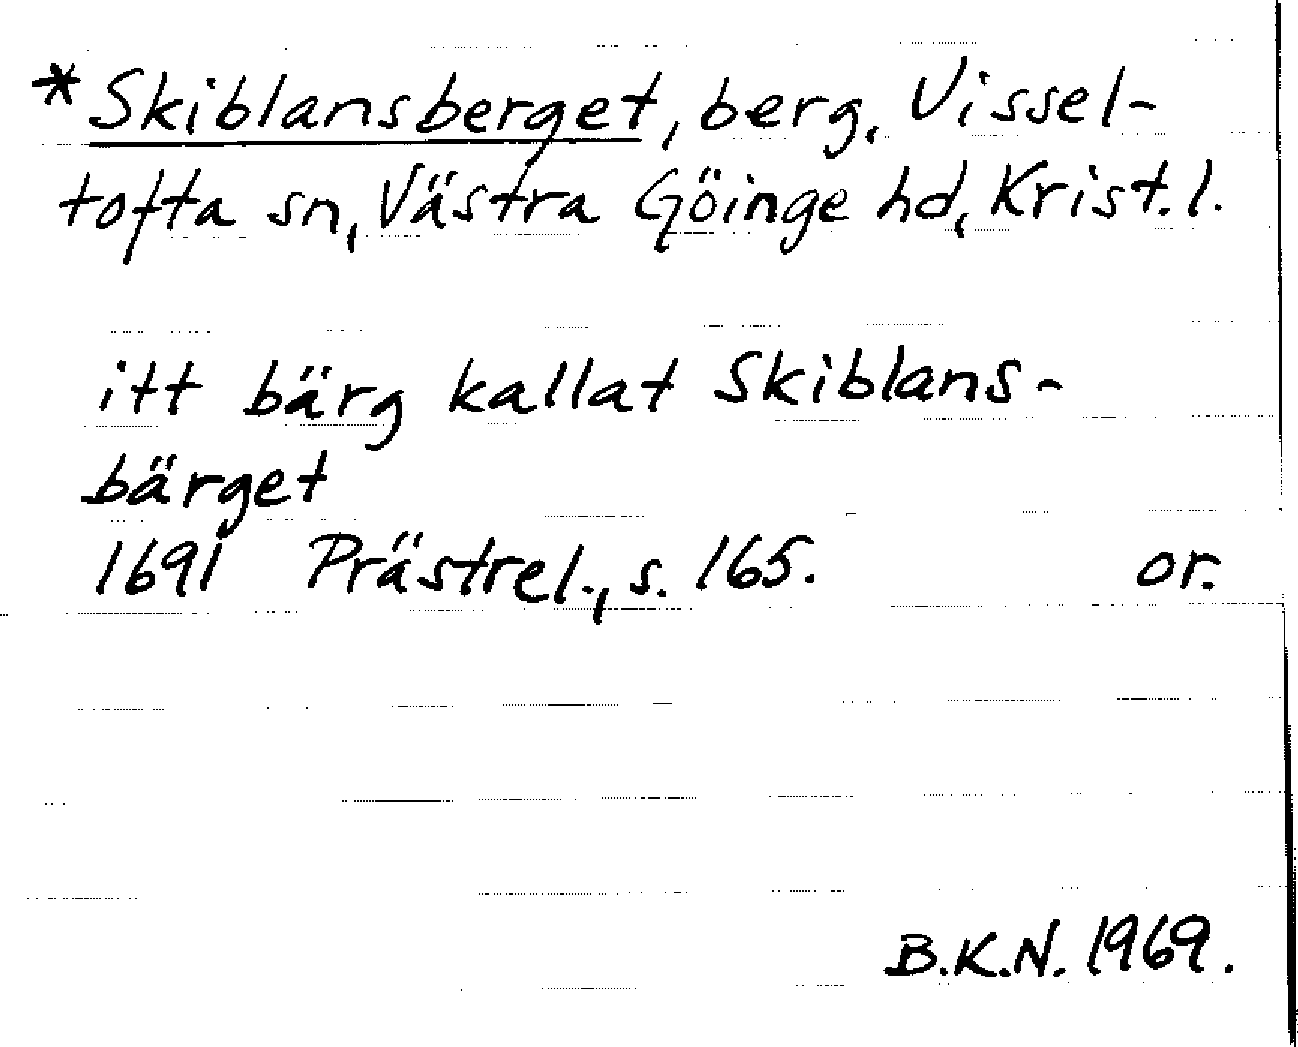 *Skiblansberget, berg, Vissel-
tofta sn, Västra Göinge hd, Krist. l.
itt bärg kallat Skiblans-
bärget
1691 Prästrel., s. 165. or.
B.K.N. 1969.